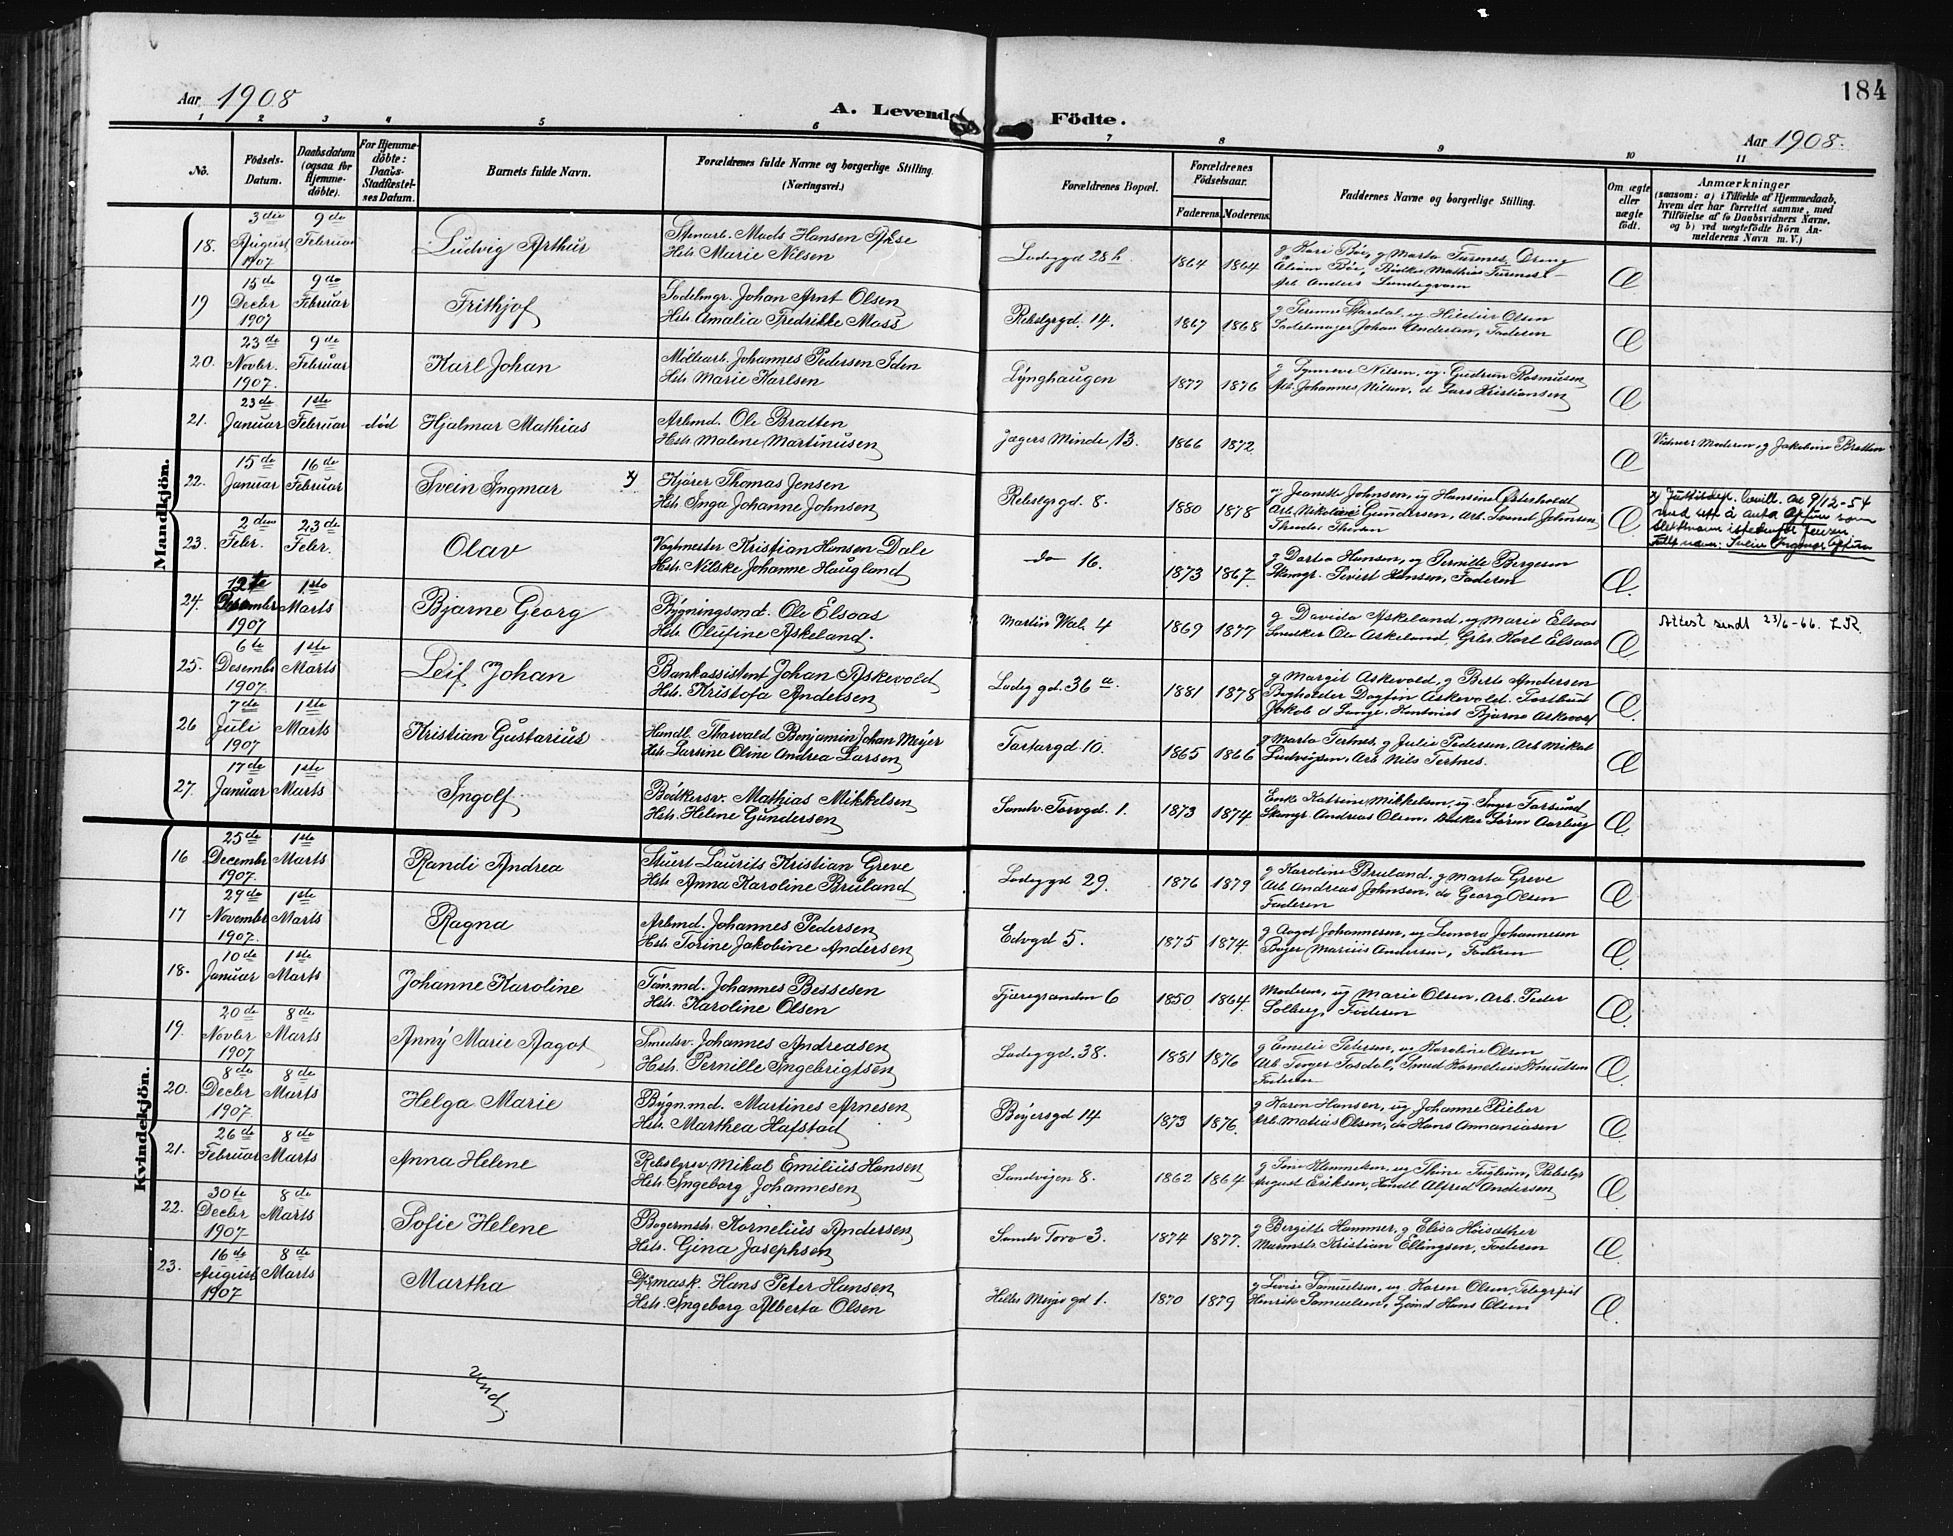 184
Aar 1908
A. Levende Födte.
Aar 1908.
1 2 3 4 5 6 7 8 9 10 11
No.
Födsels-
Datum.
Daabsdatum
(ogsaa for
Hjemme-
döbte).
For Hjemme-
döbte:
Daabs-
Stadfæstel-
ses Datum.
Barnets fulde Navn.
Forældrenes fulde Navne og borgerlige Stilling.
(Næringsvei.)
Forældrenes Bopæl.
Forældrenes
Födselsaar.
Faderens. Moderens.
Faddernes Navne og borgerlige Stilling.
Om ægte
eller
uægte
födt.
Anmærkninger
(saasom: a) i Tilfælde af Hjemmedaab,
hvem der har forrettet samme, med
Tilföielse af to Daabsvidners Navne,
og b) ved uægtefödte Börn An-
melderens Navn m. V.)
Mandkjön.
18. 3die August 1907 9de Februar Ludvig Arthur
Stenarb. Mads Hansen
Hstr. Marie Nilsen
Ladeggd 28 h 1864 1864
Æ
19 15de Decbr 1907 9de Februar Frithjof
Sadelmgr. Johan Arnt Olsen
Hstr. Amalia Fredrikke Moss
Rebslgrgd. 14. 1867 1868
Sadelmager Johan Andersen, Faderen
Æ
20. 23de Novbr. 1907. 9de Februar Karl Johan
Møllearb. Johannes Pedersen
Hstr. Marie Karlsen
Lynghaugen 1877 1876
g Synneve Nilsen, ug Gudrun Rasmusen
Arb. Johannes Nilsen, d Lars Kristiansen
Æ
21. 23de Januar 1ste Februar død Hjalmar Mathias
Arbmd. Ole Bratten
Hstr. Malene Martinusen
Jægers Minde 13. 1866 1872
Æ
Vidner: Moderen, g Jakobine Bratten
22. 15de Januar 16de Februar Svein Ingmar x)
Kjører Thomas Jensen
Hstr. Inga Johanne Johnsen
Rebslgrgd. 8. 1880 1878
ug Hansine Østerholdt
Arb. Nikolai Gundersen, Arb. Svend Johnsen
Æ
x) Justisdep. bevill. av 9/12-54
med rett å anta
slektnavn istedenfor Jensen
Fullt navn: Svein Ingmar
23. 2den Febr. 23de Febr. Olav
Vagtmester Kristian Hansen Dale
Hstr. Nilske Johanne Haugland
do 16. 1873 1867.
g Darta Hansen, ug Pernille Bergesen
Skomgr. Sivert Hansen, Faderen
Æ.
24. 12te Desembr 1907 1ste Marts Bjarne Georg
Bygningsmd. Ole Elsaas
Hstr. Olufine Askeland.
Martins Wal. 4 1869 1877
g Davida Askeland, ug Marie Elsaas
Snedker Ole Askeland, Grbr. Karl Elsaas
Æ
Attest sendt 23/6-66. L.R.
25. 6te Desembr 1907. 1ste Marts Leif Johan
Bankassistent Johan Askevold
Hstr. Kristofa Andersen
Ladeg gd. 36 a 1881 1878
g Margit Askevold, g Berte Andersen
Bogholder Dagfin Askevold. Postbud
Jakob d Lange. Kontorist Bjarne Askevold
Æ.
26 7de Juli 1907 1ste Marts Kristian Gustavius
Handl. Tharvald Benjamin Johan Meyer
Hstr. Larsine Oline Andrea Larsen
Tartargd 10. 1865 1866
g Marta Tertnes, g Julie Pedersen, Arb Mikal
Ludvigsen, Arb Nils Tertnes.
Æ
27. 17de Januar 1ste Marts Ingolf
Bødkersv. Mathias Mikkelsen
Hstr. Helene Gundersen
Sandv. Torvgd. 1. 1873 1874
Enke Katrine Mikkelsen, ug Inger Forsund
Skomgr. Andreas Olsen, Bødker Søren Aarberg
Æ
Kvindekjön.
16 25de Decembr 1907. 1ste Marts Randi Andrea
Stuert Laurits Kristian Greve
Hstr. Anna Karoline Bruland
Ladeggd 29. 1876 1879
g Karoline Bruland, g Marta Greve
Arb Andreas Johnsen, do Georg Olsen
Faderen
Æ
17 29de November 1907. 1ste Marts Ragna
Arbmd. Johannes Pedersen
Hstr. Torine Jakobine Andersen
Edvgd 5. 1875 1874.
g Aagot Johannesen, ug Lenora Johannesen
Bager Marius Andersen, Faderen
Æ.
18. 10de Januar 1ste Marts Johanne Karoline
Tøn.md. Johannes Bessesen
Hstr. Karoline Olsen
Tjæregranden 6 1850 1864.
Moderen, ug Marie Olsen, Arb. Peder
Solberg, Faderen
Æ.
19. 20de Novbr 1907 8de Marts Anny Marie Aagot
Smedsv. Johannes Andreasen
Hstr. Pernille Ingebrigtsen
Ladeggd. 38. 1881 1876
g Emelie Petersen, ug Karoline Olsen
Arb Tosdal, Smed Kornelius Knudsen
Faderen
Æ.
20. 8de Decbr 1907. 8de Marts Helga Marie
Bygn.md. Martines Arnesen
Hstr. Marthea Hafstad
Beyersgd 14 1873 1876.
g Karen Hansen, ug Johanne Rieber
Arb. Matias Olsen, do Hans Annaniasen
Æ
21. 26de Februar 8de Marts Anna Helene
Rebslgrsv. Mikal Emilius Hansen
Hstr. Ingeborg Johannesen
Sandvigen 8. 1862 1864
August Eriksen, Handl Alfred Andersen
Æ.
22. 30te Decbr 1907 8de Marts Sofie Helene
Bagermstr. Kornelius Andersen
Hstr. Gina Josephsen
Sandv Torv 3. 1874 1877.
g Bergitte Hammer, g Elisa Høisæther
Murmstr. Kristian Ellingsen, Faderen
Æ
23. 16de August 1907 8de Marts Martha
Hans Peter Hansen
Hstr. Ingeborg Alberta Olsen
1870 1879
g Lovise Samuelsen, ug Karen Olsen, Telegrfist
Henrik Samuelsen, Hans Olsen
Æ.
Vend.